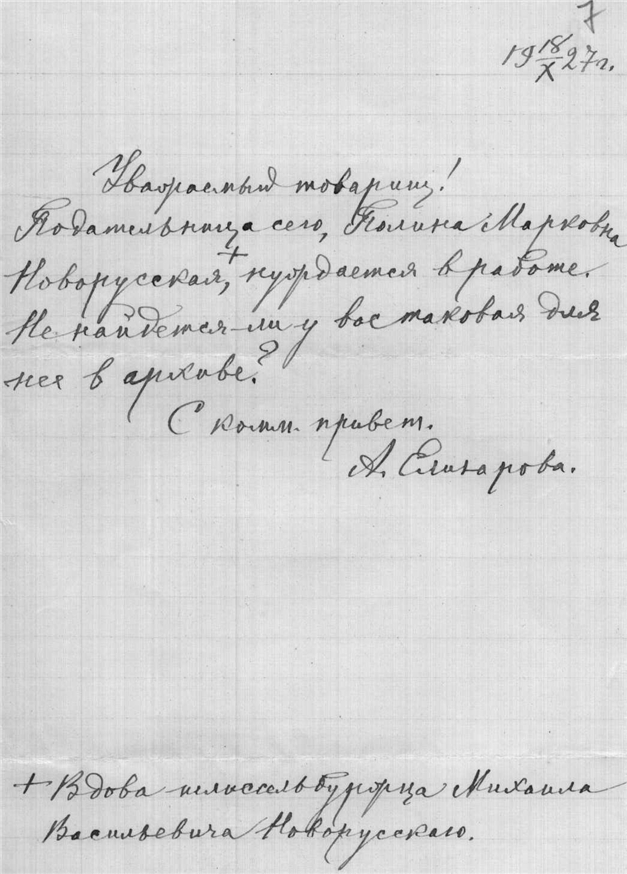 7
19 18/X 27 г.
Уважаемый товарищ!
Подательница сего, Полина Марковна
Новорусская,+ нуждается в работе.
Не найдется-ли у вас таковая для
нее в архиве?
С комм. привет.
А. Елизарова.
+ Вдова шлиссельбуржца Михаила
Васильевича Новорусскаго.